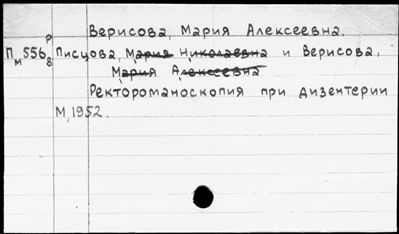 Верисова, Мария Алексеевна.
Р
П 556 Писцова, Мария Николаевна и Верисова,
М 8 Мария Алексеевна
Ректороманоскопия при дизентерии
М, 1952.